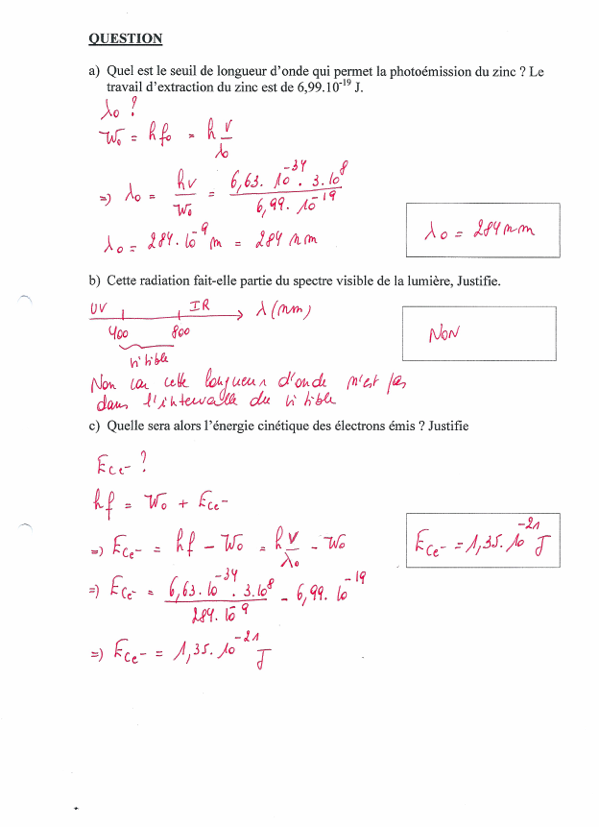 QUESTION
a) Quel est le seuil de longueur d'onde qui permet la photoémission du zinc ? Le
travail d'extraction du zinc est de 6,99.10⁻¹⁹ J.
λ₀ ?
W₀ = hf₀ = h v/λ₀
=) λ₀ = hv/W₀ = 6,63. 10⁻³⁴ . 3.10⁸ / 6,99. 10⁻¹⁹
λ₀ = 284. 10⁻⁹ m = 284 nm
λ₀ = 284 nm
b) Cette radiation fait-elle partie du spectre visible de la lumière, Justifie.
UV IR λ (nm)
400 800
Visible
NON
Non car cette longueur d'onde n'est pas
dans l'intervalle du visible
c) Quelle sera alors l'énergie cinétique des électrons émis ? Justifie
Ece- ?
hf = W₀ + Ece-
=) Ece- = hf - W₀ = h v/λ₀ - W₀
=) Ece- = 6,63. 10⁻³⁴ . 3.10⁸ / 284. 10⁻⁹ - 6,99. 10⁻¹⁹
=) Ece- = 1,35. 10⁻²¹ J
Ece- = 1,35. 10⁻²¹ J